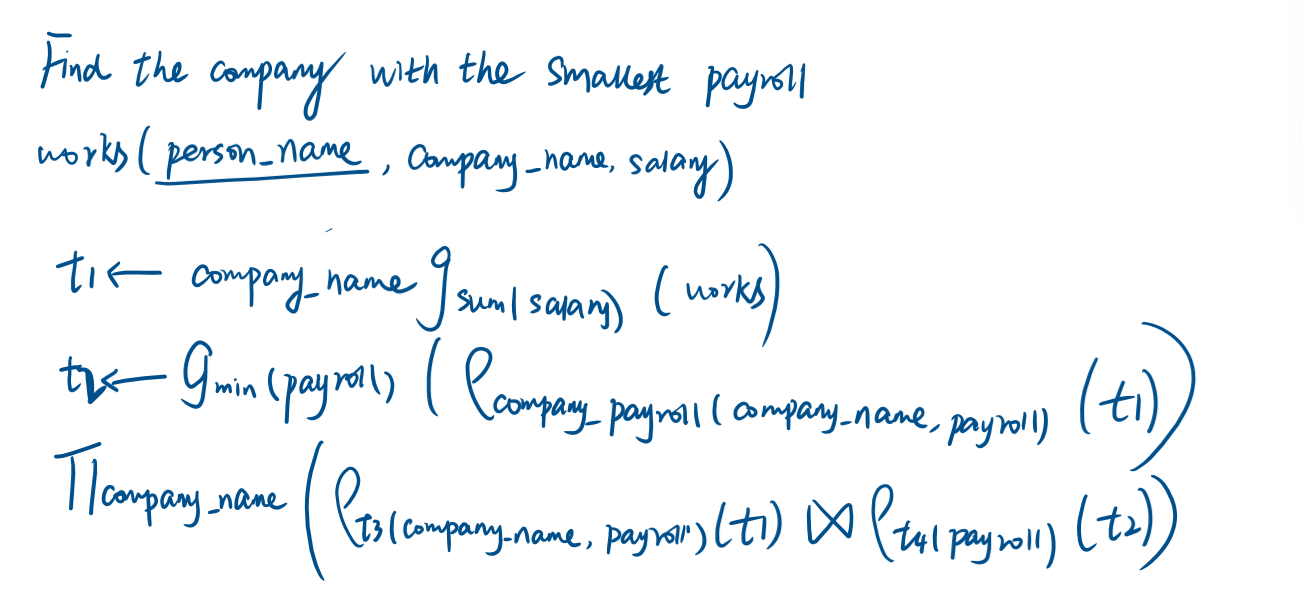 Find the company with the smallest payroll
works(person_name, company_name, salary)
t1← company_name g sum(salary) (works)
t2← g min(payroll) (ρ company_payroll(company_name, payroll) (t1))
Π company_name (ρ t3(company_name, payroll) (t1) ⋈ ρ t4(payroll) (t2))